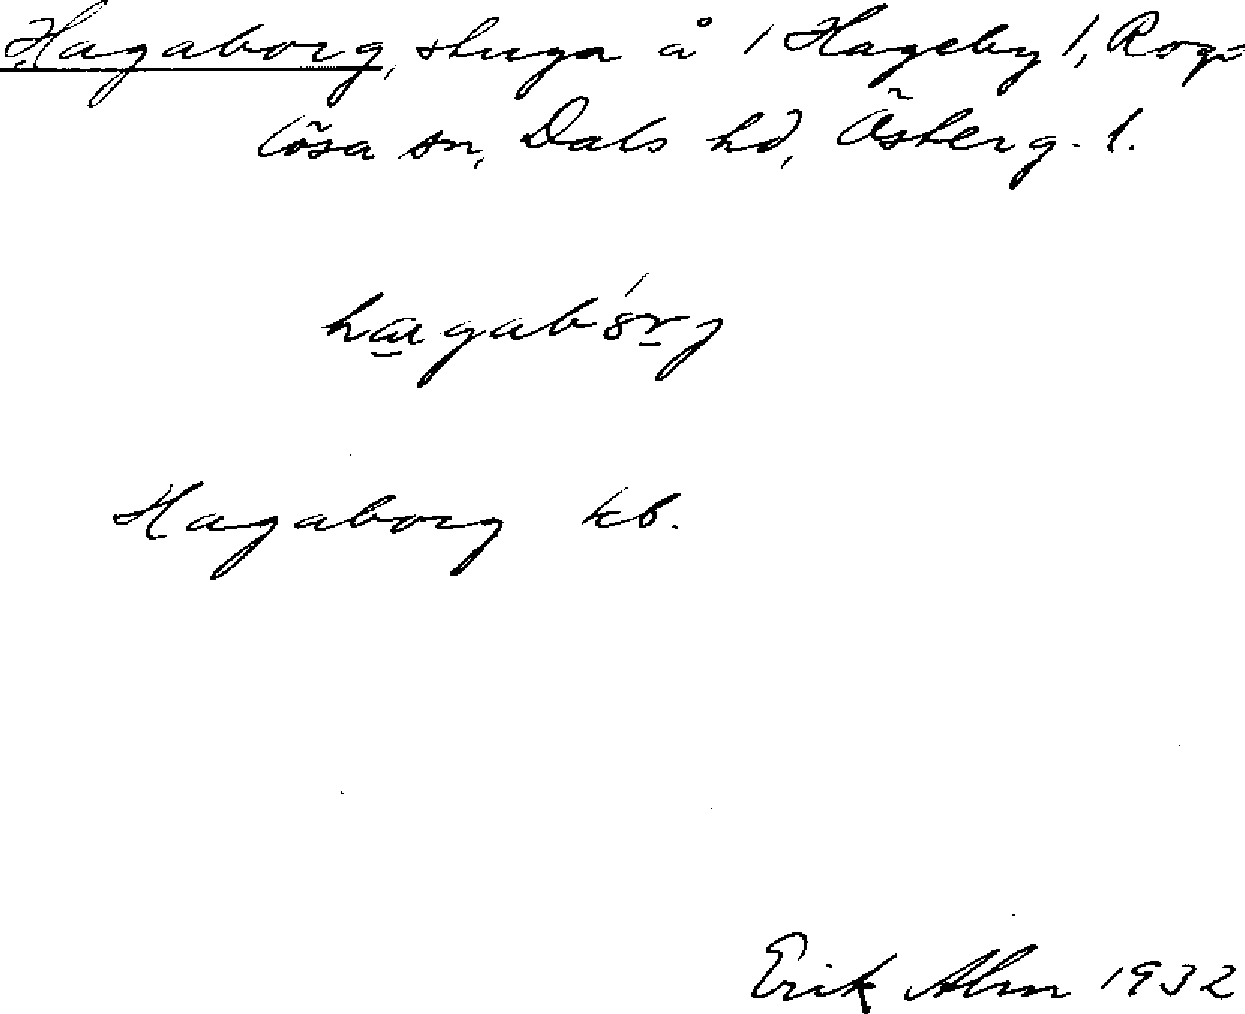 Hagaborg, stuga å /Hageby/, Rog-
lösa sn, Dals hd, Österg. l.
Hagaborg kb.
Erik Alm 1932